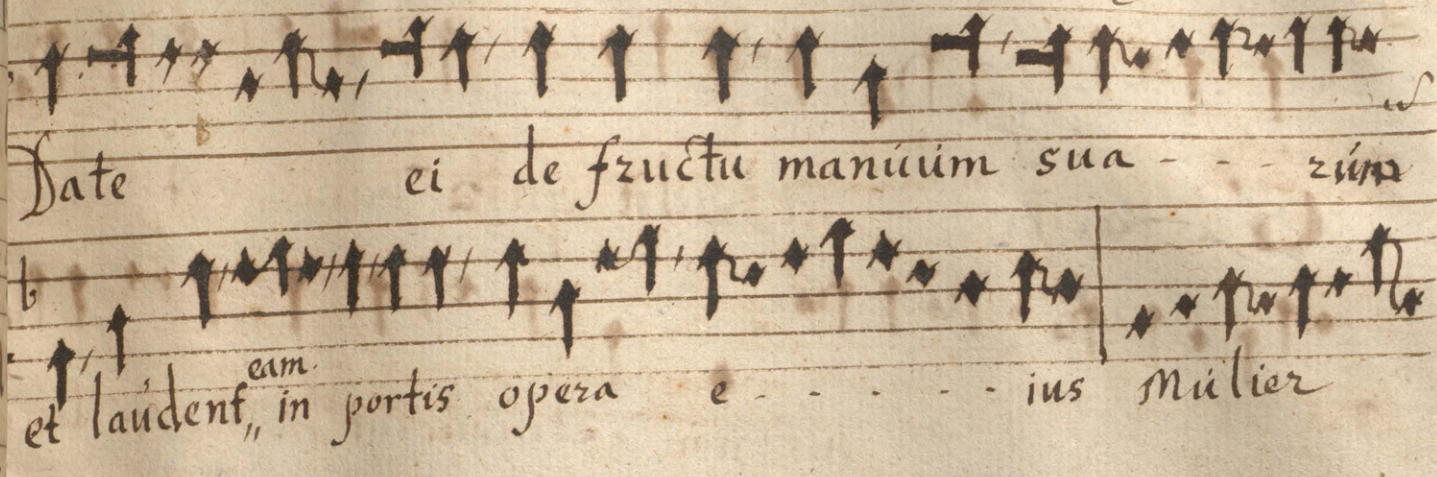 Date ei de fructu manúúm sua - - - rúm
eam
et laúdent,, in portis opera e - - - - - ius Múlier